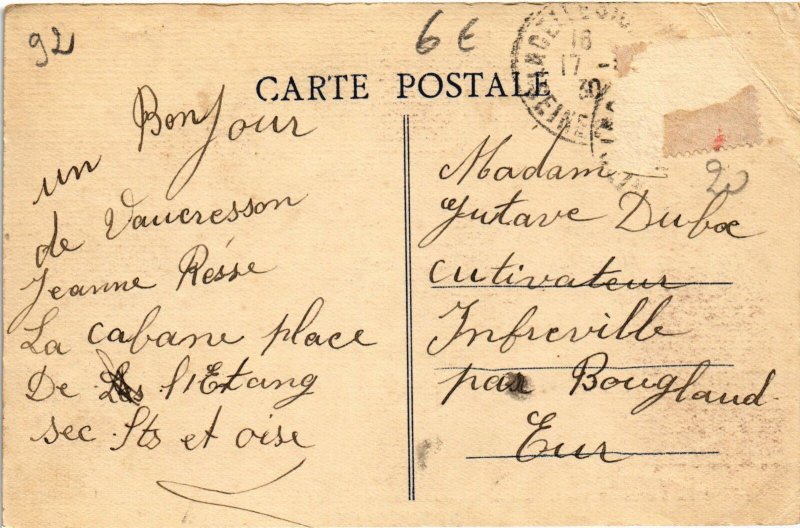 92
6 €
CARTE POSTALE
un Bonjour
de Vaucresson
Jeanne Résse
La cabane place
De l'Etang
sec Sts et oise
18
17
30
20
Madame
Gutave Duboc
cutivateur
Infreville
par Bougland
Eur